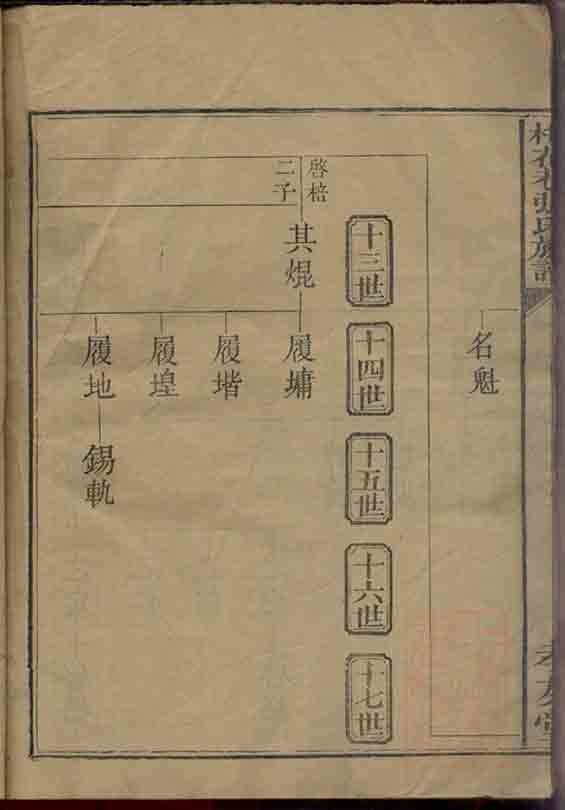 張氏族譜
名魁
十三世
十四世
十五世
十六世
十七世
啓棓
二子
其焜
履墉
履堦
履堭
履地
錫軌